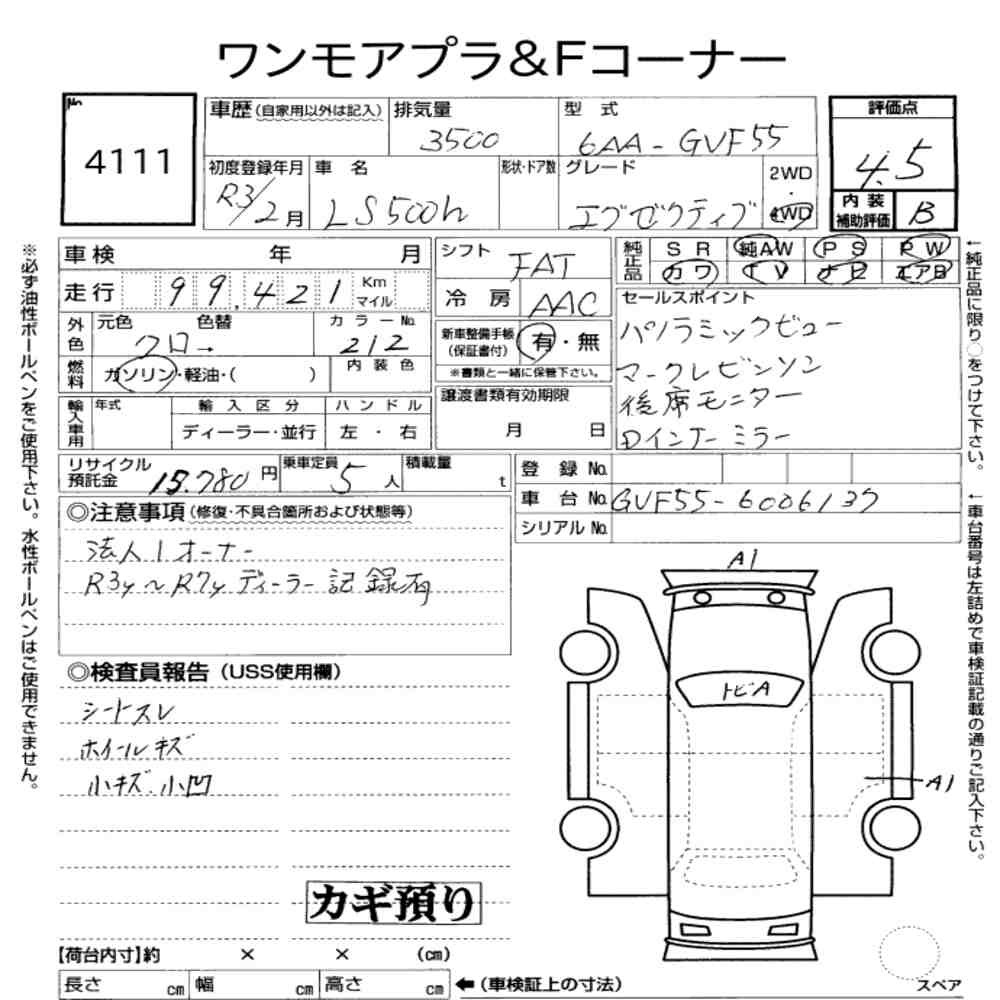 ワンモアプラ&Fコーナー
No.
4111
車歴(自家用以外は記入) 排気量 3500 型式 6AA-GVF55
評価点 4.5
初度登録年月 R3/2月 車名 LS500h 形状・ドア数 グレード エグゼクティブ 2WD・4WD
内装補助評価 B
車検 年 月
走行 99,421 Km マイル
外色 元色 クロ→ 色替 カラーNo. 212
燃料 ガソリン・軽油・( ) 内装色
輸入車用 年式 輸入区分 ディーラー・並行 ハンドル 左・右
シフト FAT
冷房 AAC
新車整備手帳(保証書付) 有・無
※書類と一緒に保管下さい。
譲渡書類有効期限
月 日
純正品 SR 純AW PS PW
カワ TV ナビ エアB
セールスポイント
パノラミックビュー
マークレビンソン
後席モニター
Dインナーミラー
リサイクル預託金 15.780円 乗車定員 5人 積載量 t
登録No.
車台No. GVF55-6006137
シリアルNo.
◎注意事項(修復・不具合箇所および状態等)
法人1オーナー
R3y~R7yディーラー記録有
◎検査員報告(USS使用欄)
シートスレ
ホイールキズ
小キズ.小凹
カギ預り
A1
トビA
A1
【荷台内寸】約 × × (cm)
長さ cm 幅 cm 高さ cm ←(車検証上の寸法)
スペア
※必ず油性ボールペンをご使用下さい。水性ボールペンはご使用できません。
←純正品に限り○をつけて下さい。
←車台番号は左詰めで車検証記載の通りご記入下さい。